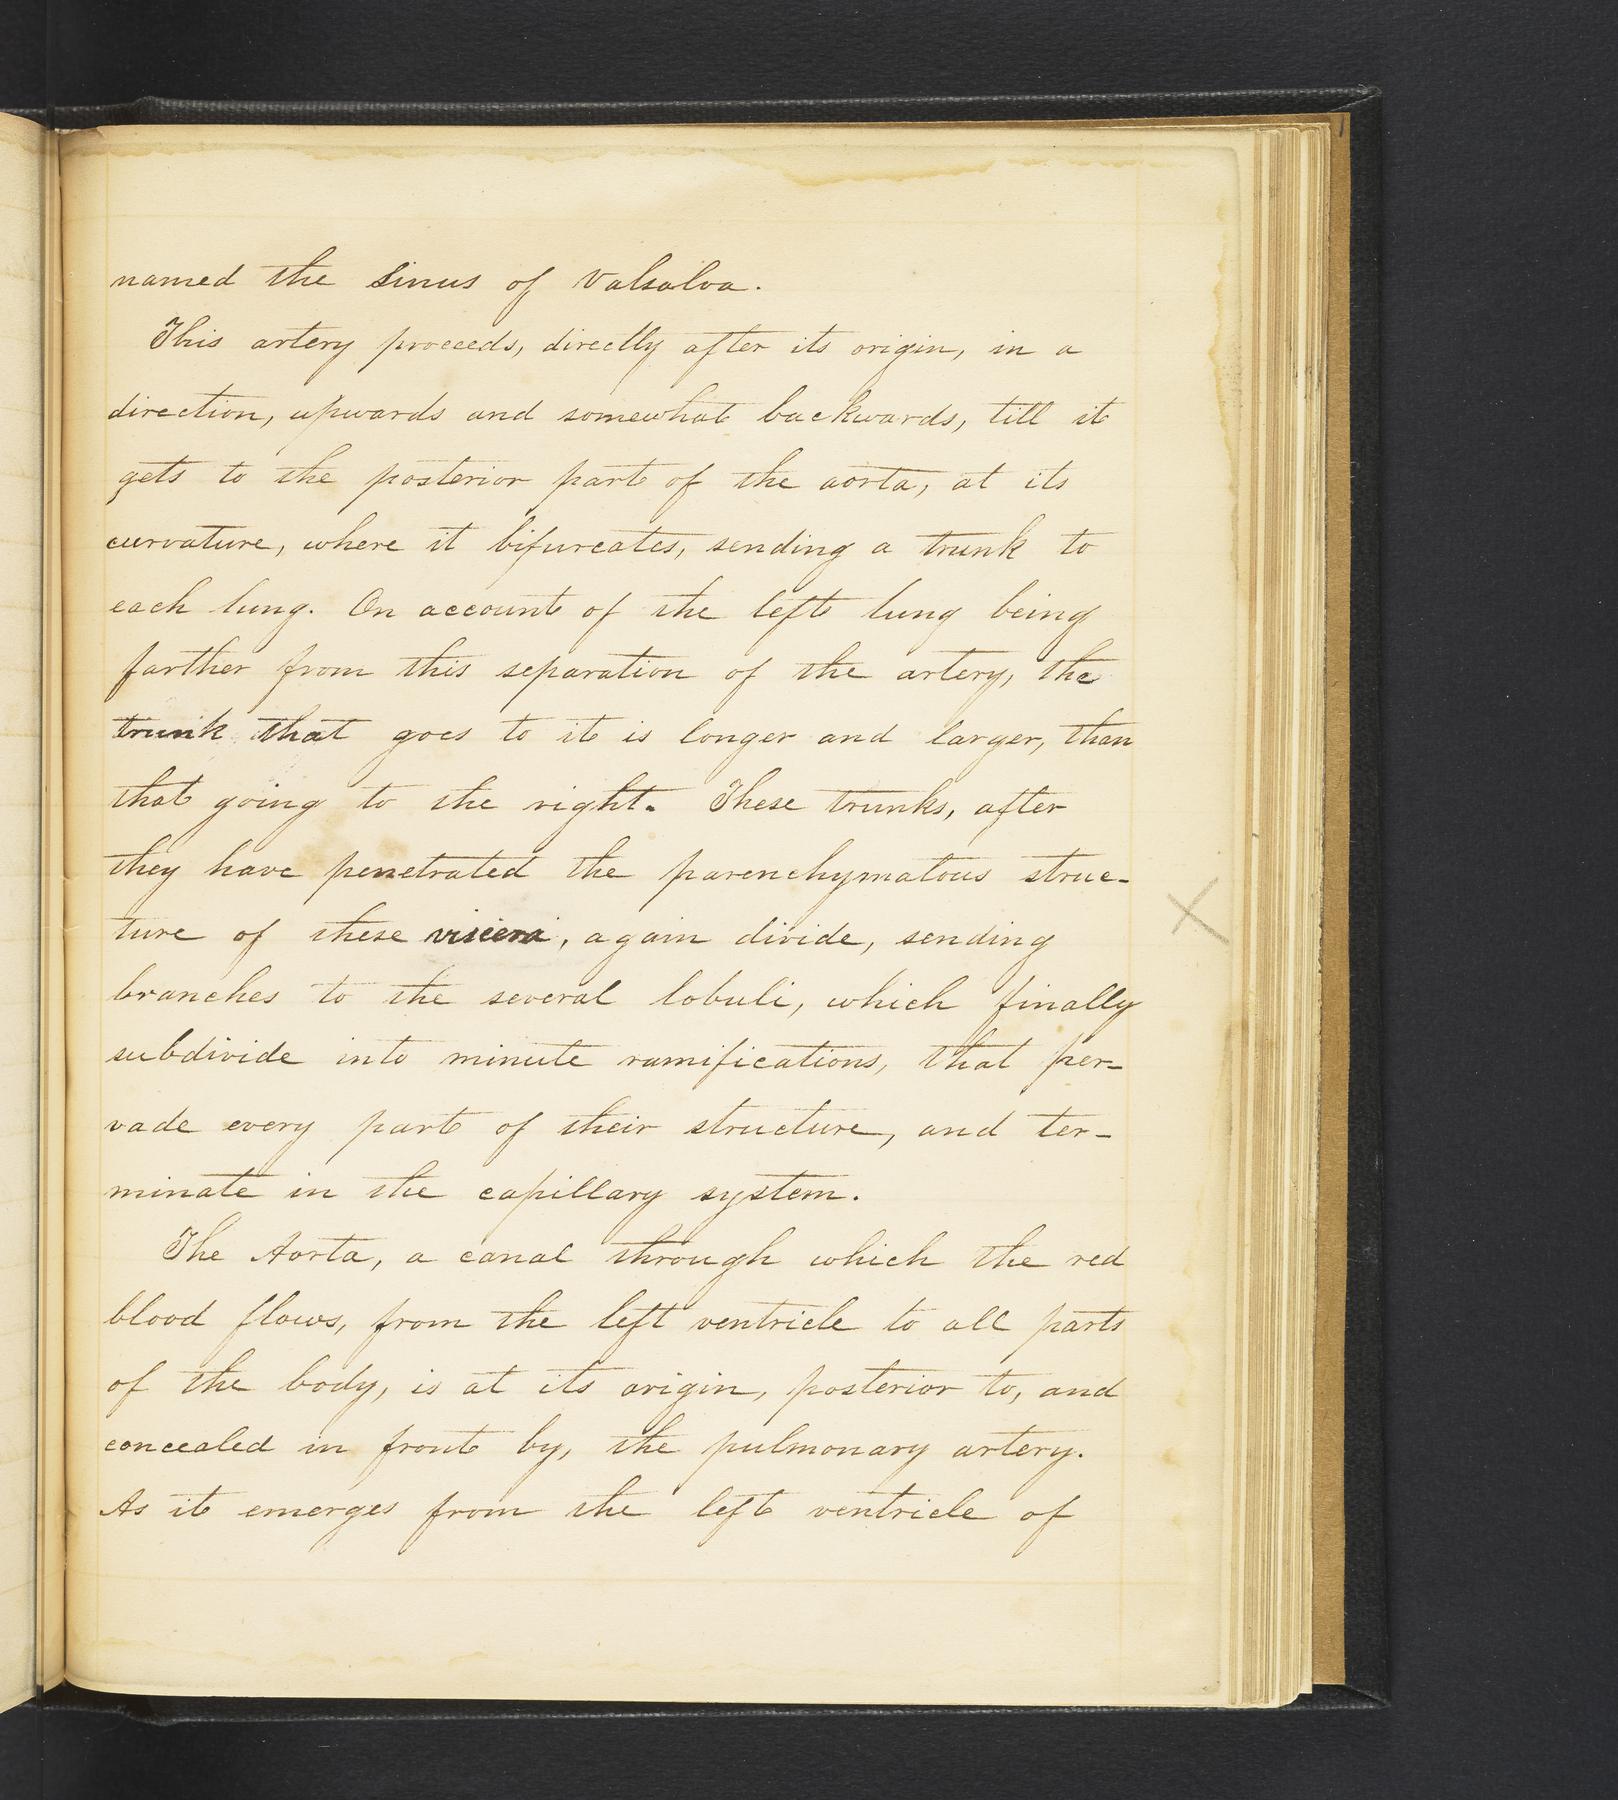 named the sinus of Valsalva.
This artery proceeds, directly after its origin, in a
direction, upwards and somewhat backwards, till it
gets to the posterior part of the aorta, at its
curvature, where it bifurcates, sending a trunk to
each lung. On account of the left lung being
farther from this separation of the artery, the
trunk that goes to it is longer and larger, than
that going to the right. These trunks, after
they have penetrated the parenchymatous struc-
ture of these viscera, again divide, sending
branches to the several lobuli, which finally
subdivide into minute ramifications, that per-
vade every part of their structure, and ter-
minate in the capillary system.
The Aorta, a canal through which the red
blood flows, from the left ventricle to all parts
of the body, is at its origin, posterior to, and
concealed in front by, the pulmonary artery.
As it emerges from the left ventricle of